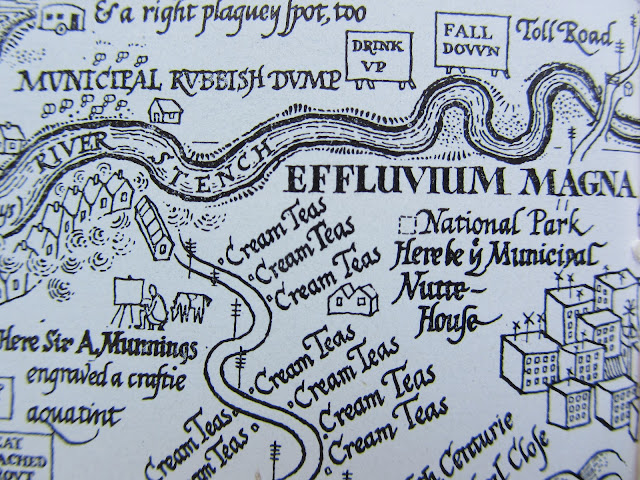 & a right plaguey ſpot, too
DRINK
VP
FALL
DOVVN
Toll Road
MVNICIPAL RVBBISH DVMP
RIVER STENCH
EFFLUVIUM MAGNA
Cream Teas
Cream Teas
Cream Teas
National Park
Here be yͤ Municipal
Nutte-
House
Here Sir A. Munnings
engraved a craftie
aquatint
Cream Teas
Cream Teas
Cream Teas
Cream Teas
Cream Teas
Cream Teas
Centurie
Cloſe
EAT
ACHED